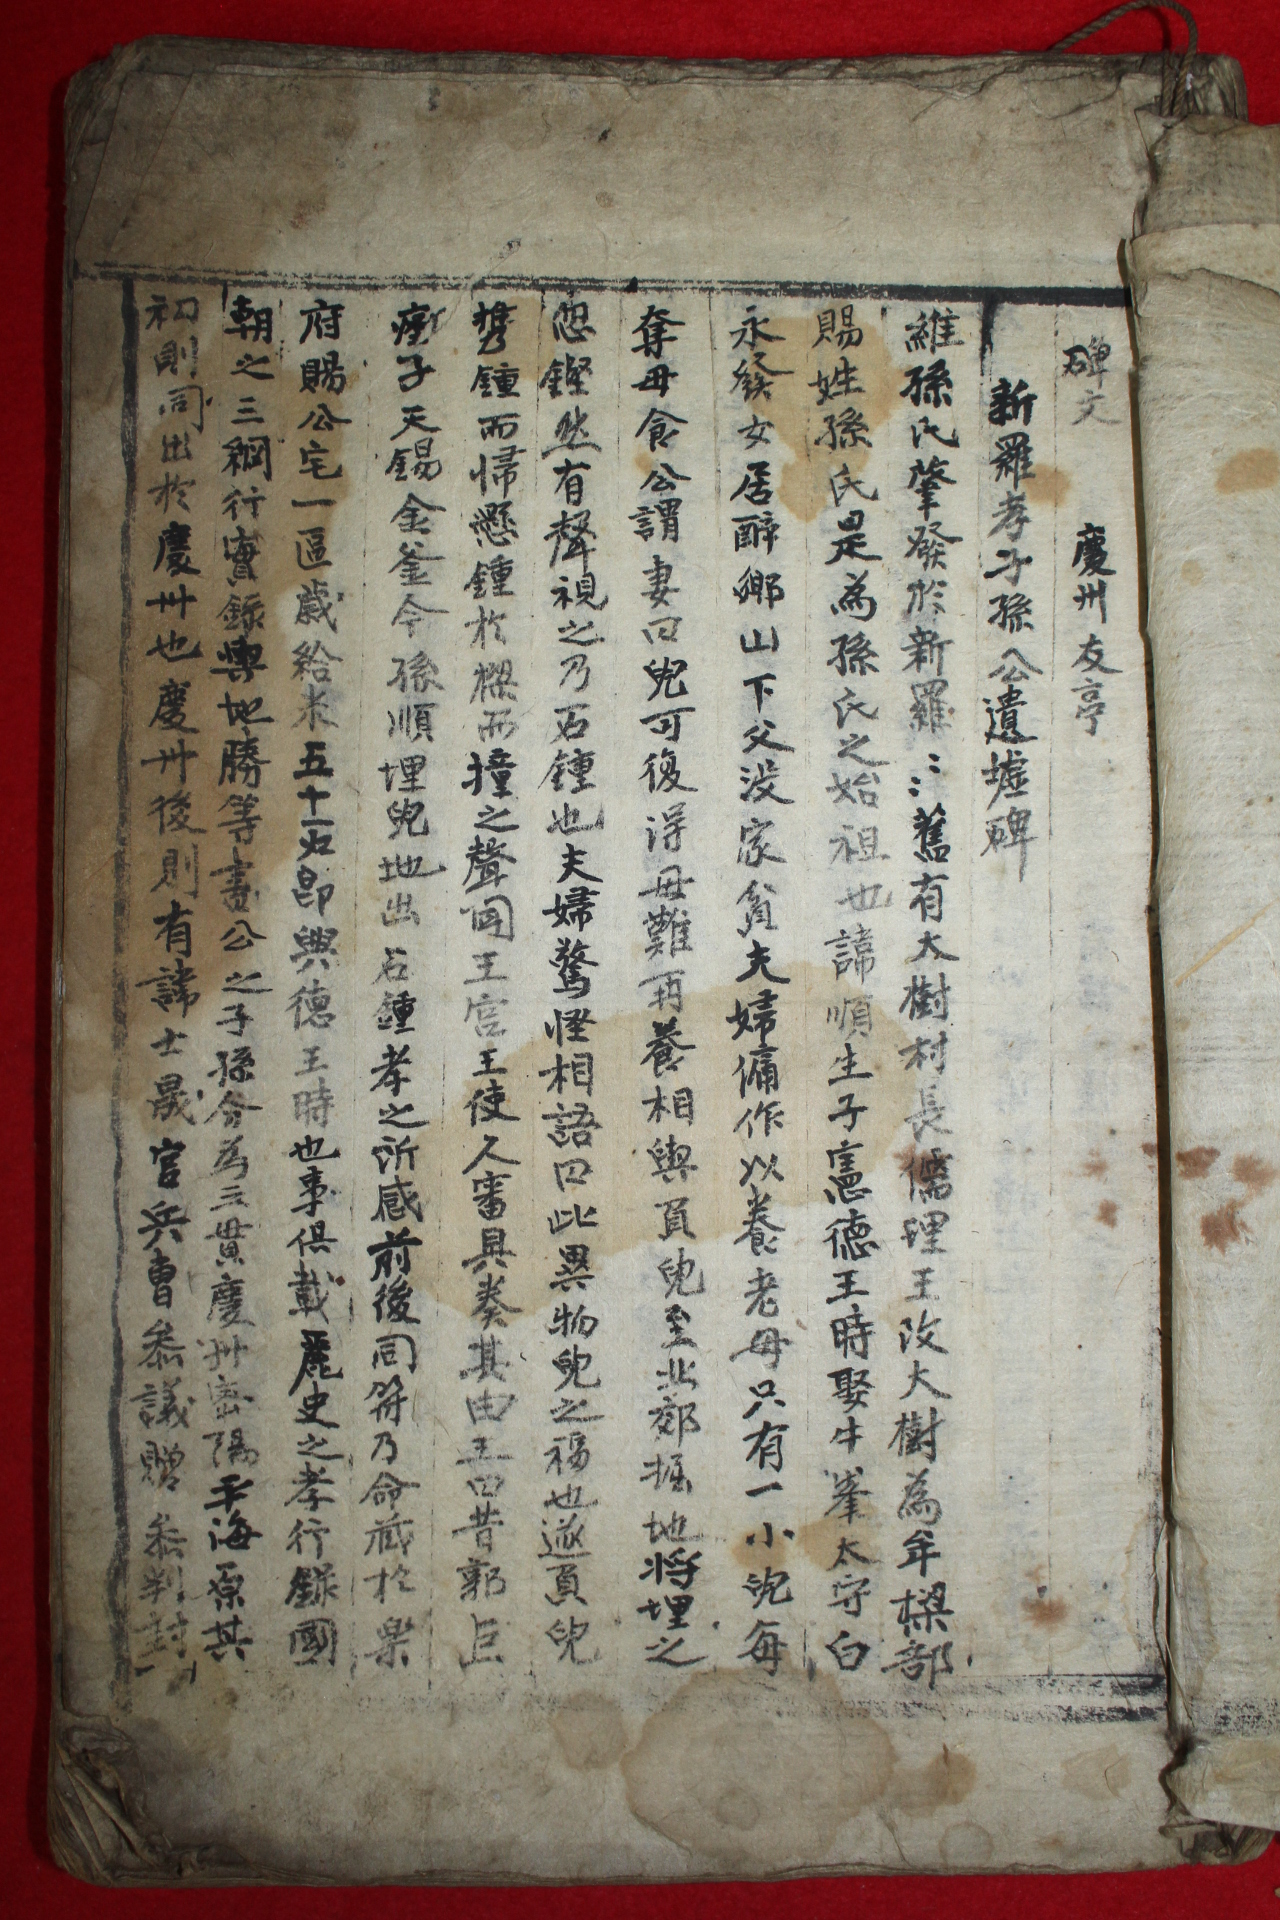 碑文 慶州友亭
新羅孝子孫公遺墟碑
維孫氏肇發於新羅〻舊有大樹村長儒理王改大樹為牟樑部
賜姓孫氏是為孫氏之始祖也諱順生子憲德王時娶牛峯太守白
永發女居醉鄉山下父沒家貧夫婦傭作以養老母只有一小兒每
奪母食公謂妻曰兒可復得母難再養相與負兒至北郊掘地將埋之
忽鏗然有聲視之乃石鍾也夫婦驚怪相語曰此異物兒之福也遂負兒
携鍾而帰懸鍾於樑而撞之聲聞王宮王使人審具奏其由王曰昔郭巨
瘞子天錫金釜今孫順埋兒地出石鍾孝之所感前後同符乃命蔵於樂
府賜公宅一區歲給米五十石即興德王時也事俱載麗史之孝行錄國
朝之三綱行實錄輿地勝等書公之子孫分為三貫慶州密陽平海原其
初則同出於慶州也慶州後則有諱士晟官兵曹叅議贈叅判封